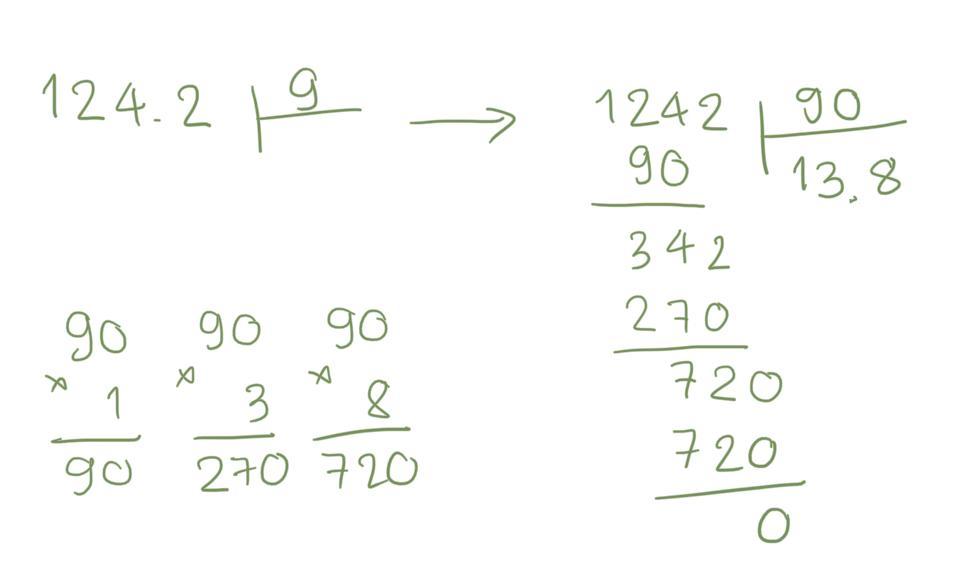 124.2 9
1242 90
13.8
90
342
270
720
720
0
90 90 90
× 1 × 3 × 8
90 270 720